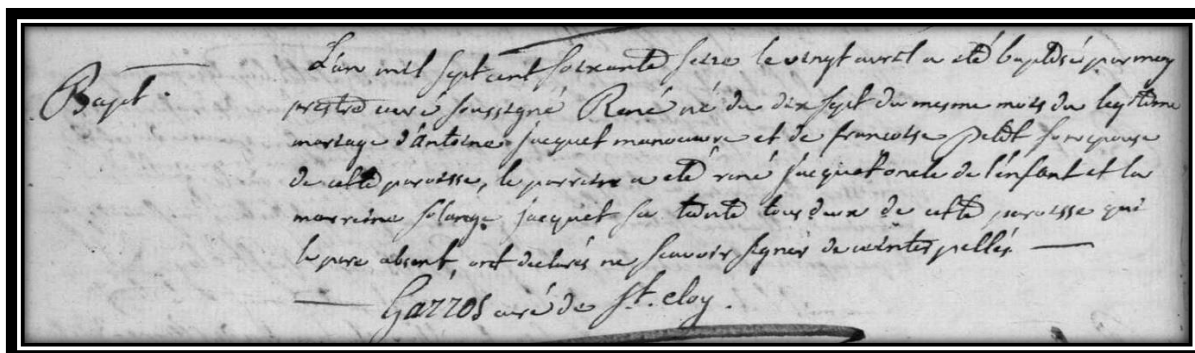 Bapt.
L'an mil sept cent soixante seize le vingt avril a eté baptisé par moy
prestre curé soussigné René né du dix sept du mesme mois du legitime
mariage d'antoine jacquet manoeuvre et de francoise petit son epouse
de cette paroisse, le parrein a eté réné jacquet oncle de l'enfant et la
marreine solange jacquet sa tante tous deux de cette paroisse qui
le pere absent, ont declarés ne scavoir signer de ce interpellés
Garros curé de St. eloy.